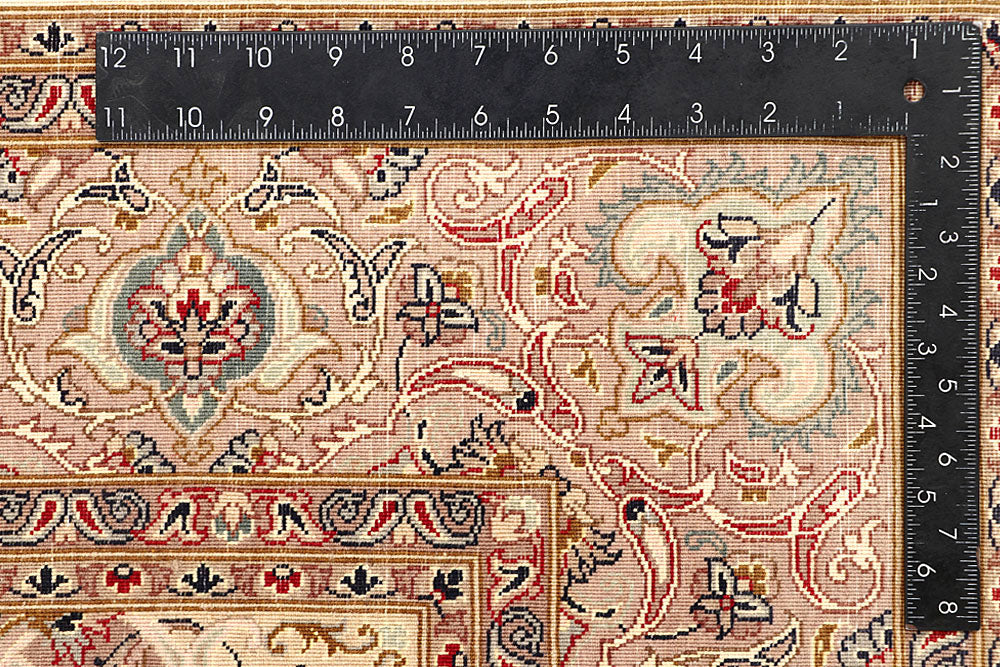 12 11 10 9 8 7 6 5 4 3 2 1
11 10 9 8 7 6 5 4 3 2 1
1 2 3 4 5 6 7 8
1 2 3 4 5 6